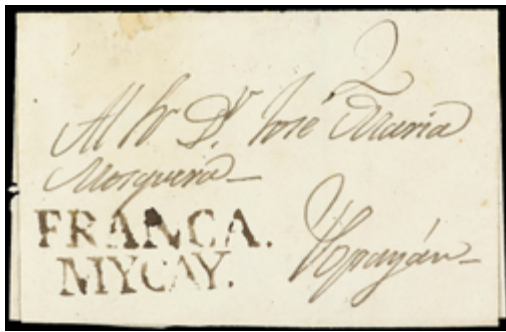 2
Al Sr Dr. José Maria
Mosquera
FRANCA.
MYCAY.
Popayán